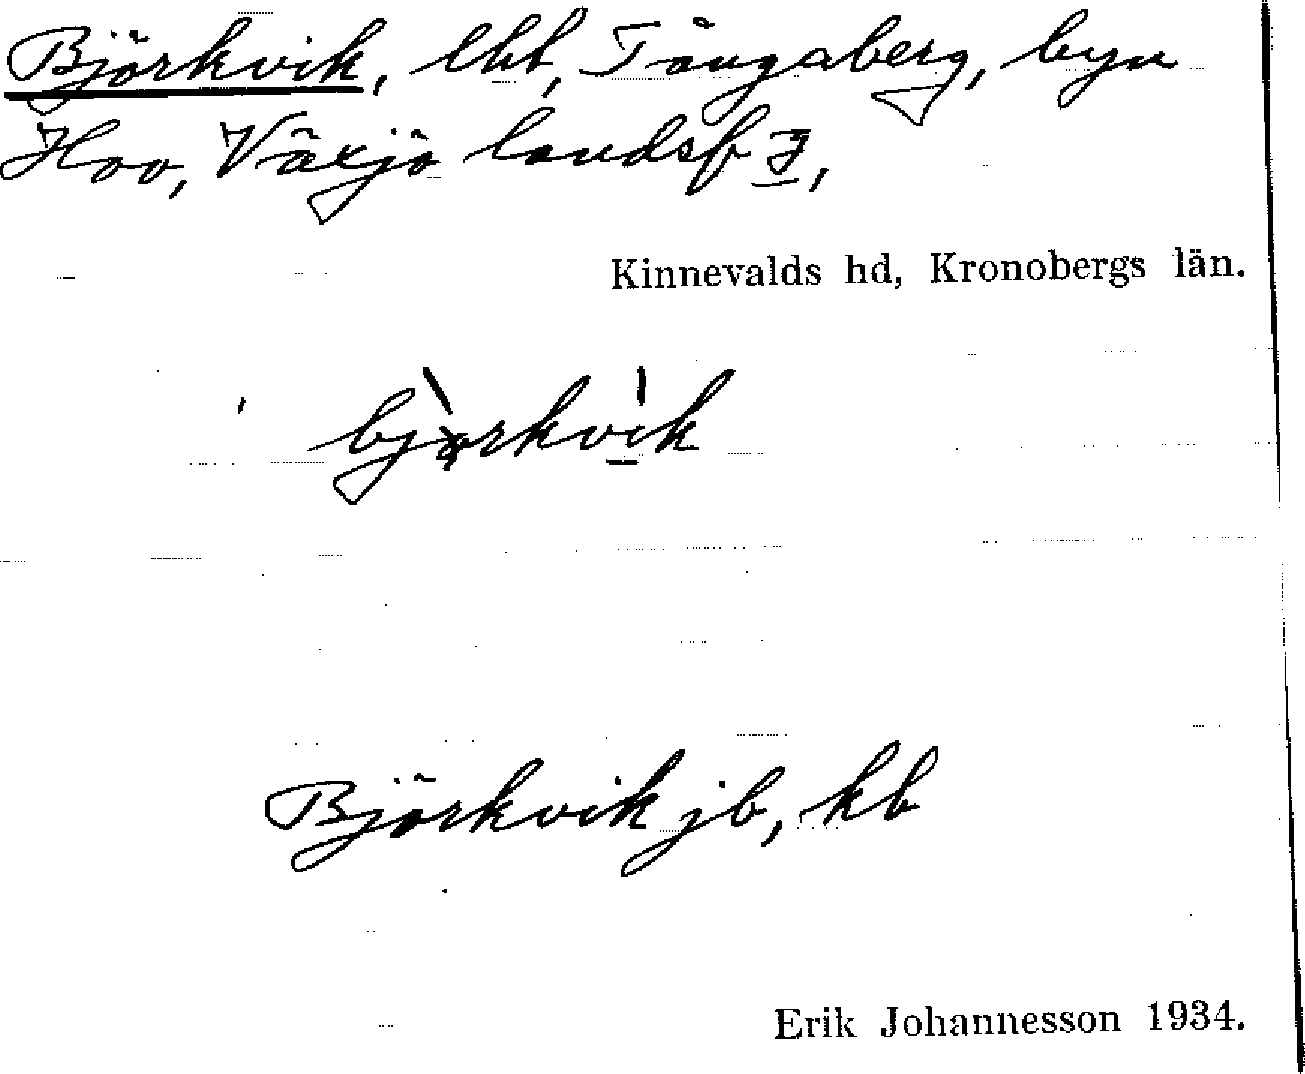 Björkvik, lht, Tångaberg, byn
Hov, Växjö landsf I,
Kinnevalds hd, Kronobergs län.
bjørkvik
Björkvik jb, kb
Erik Johannesson 1934.